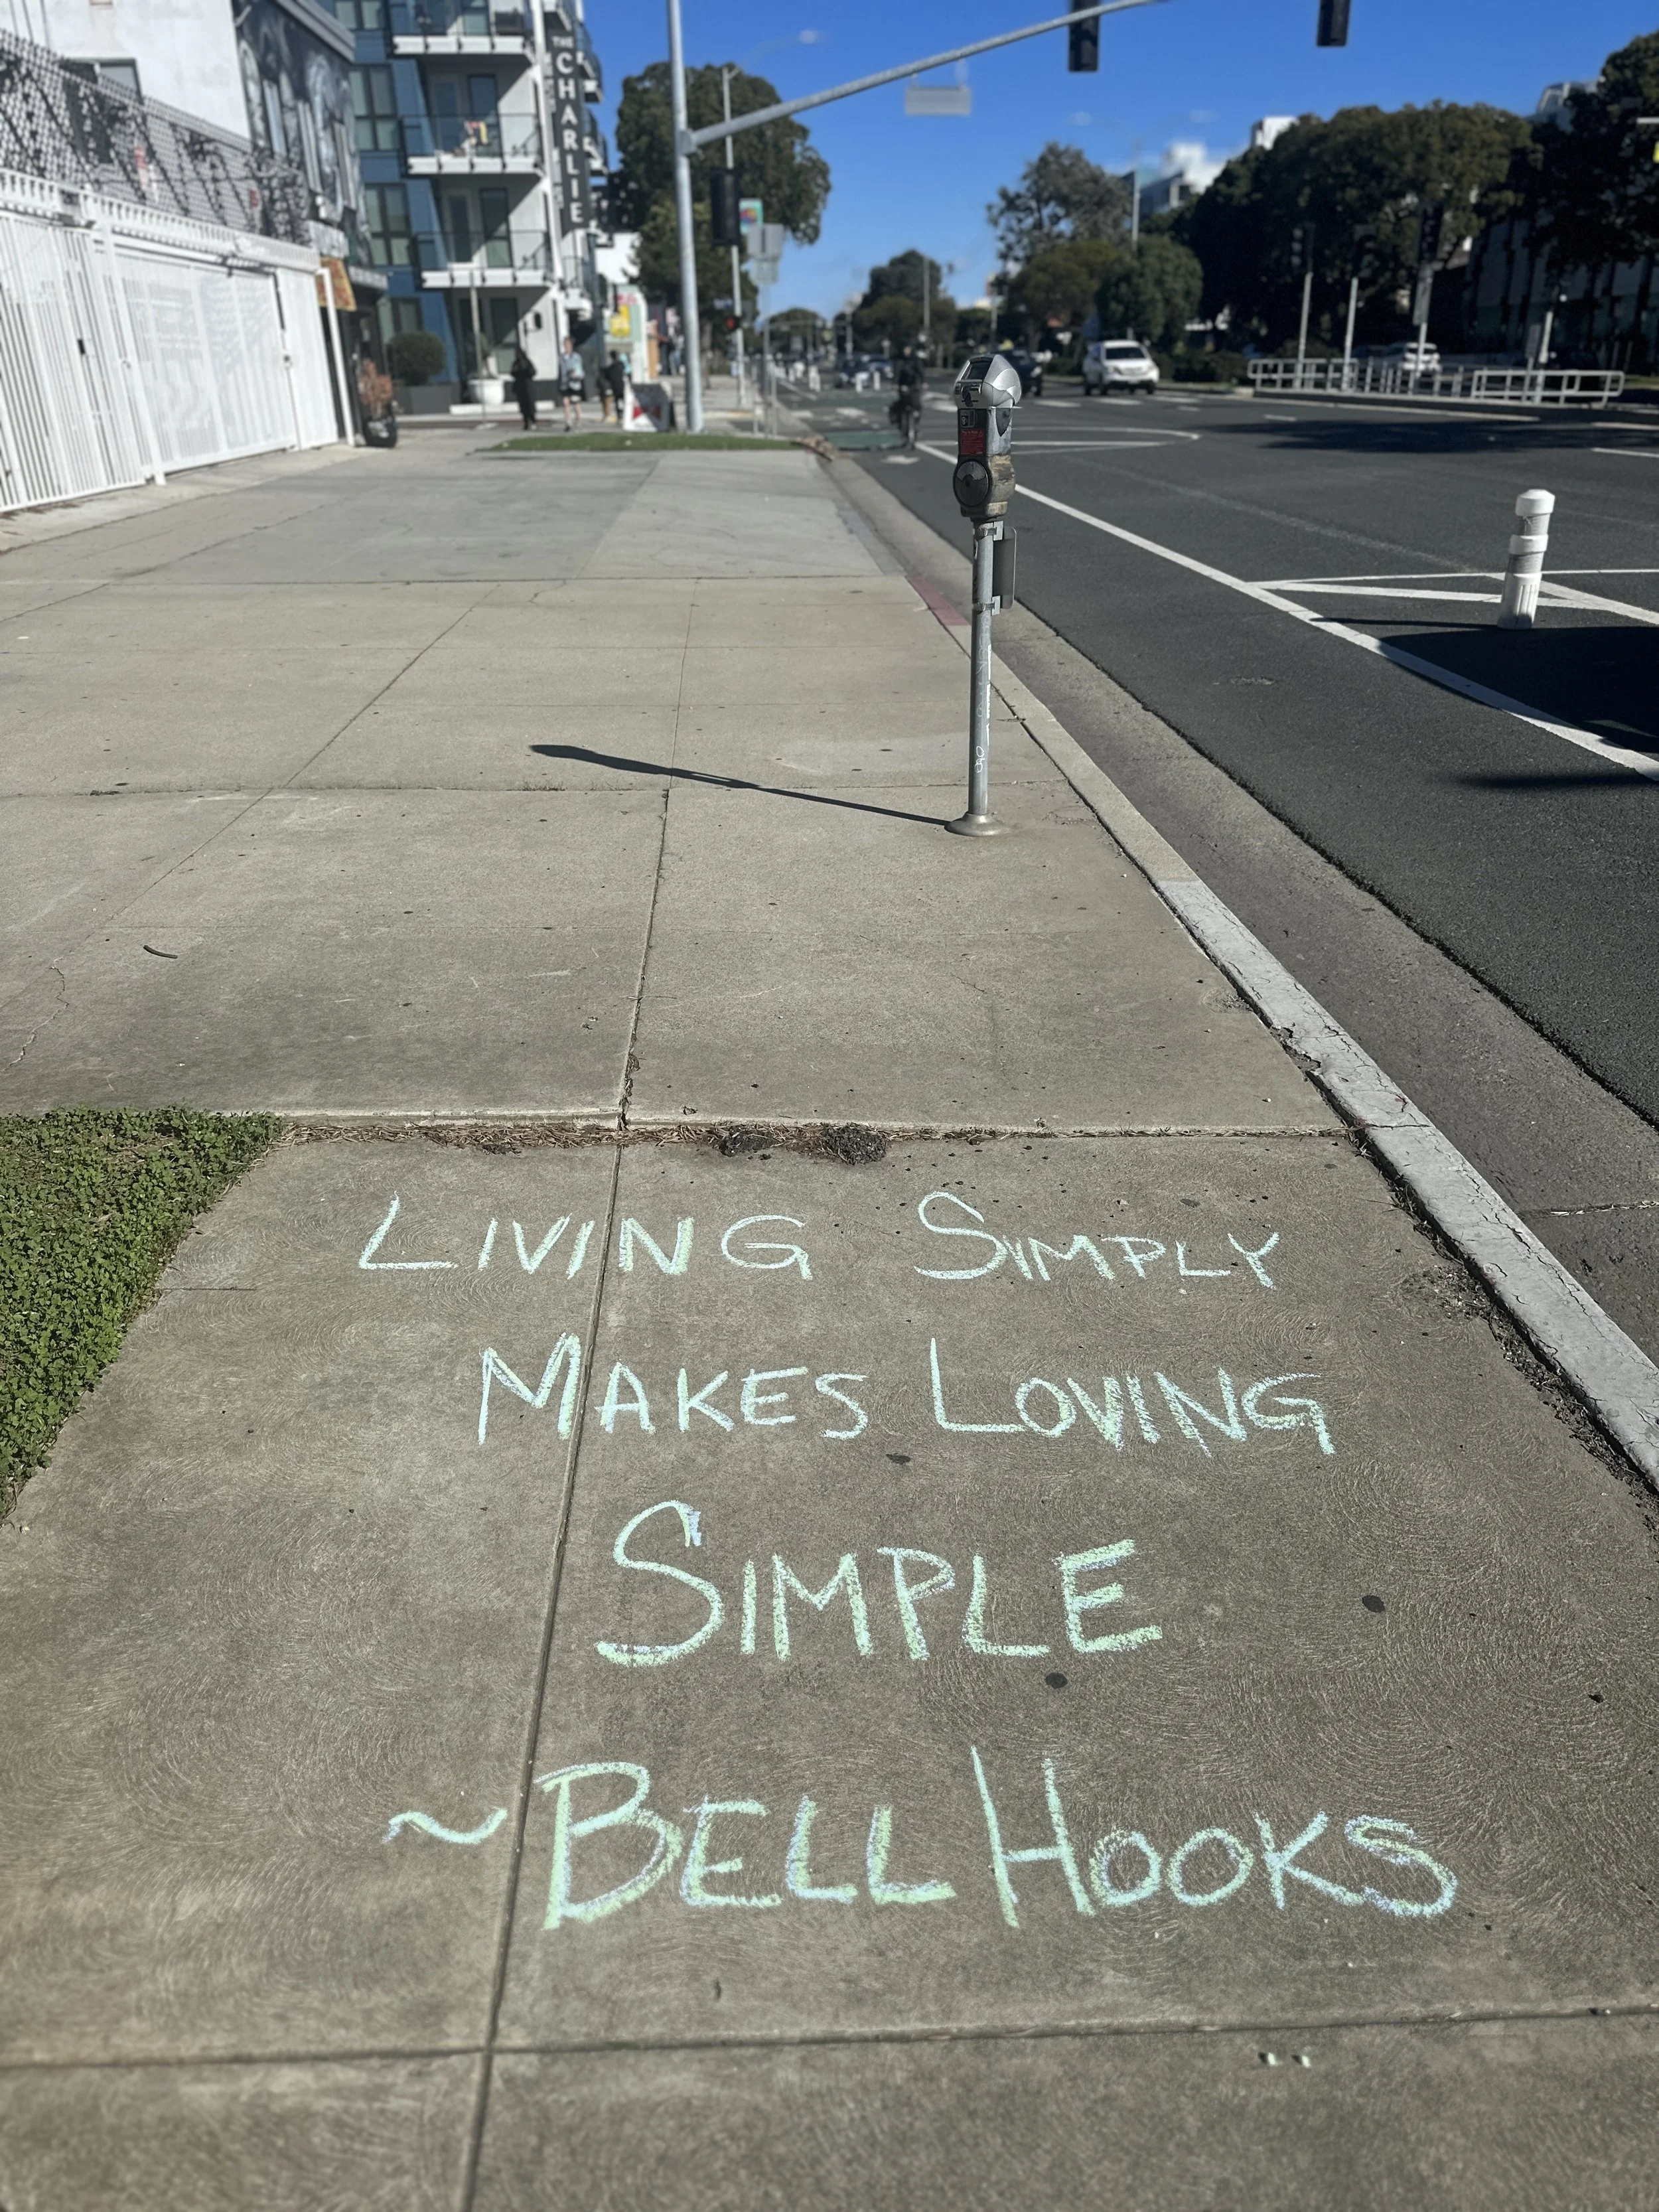 THE CHARLIE
LIVING SIMPLY
MAKES LOVING
SIMPLE
~BELL HOOKS